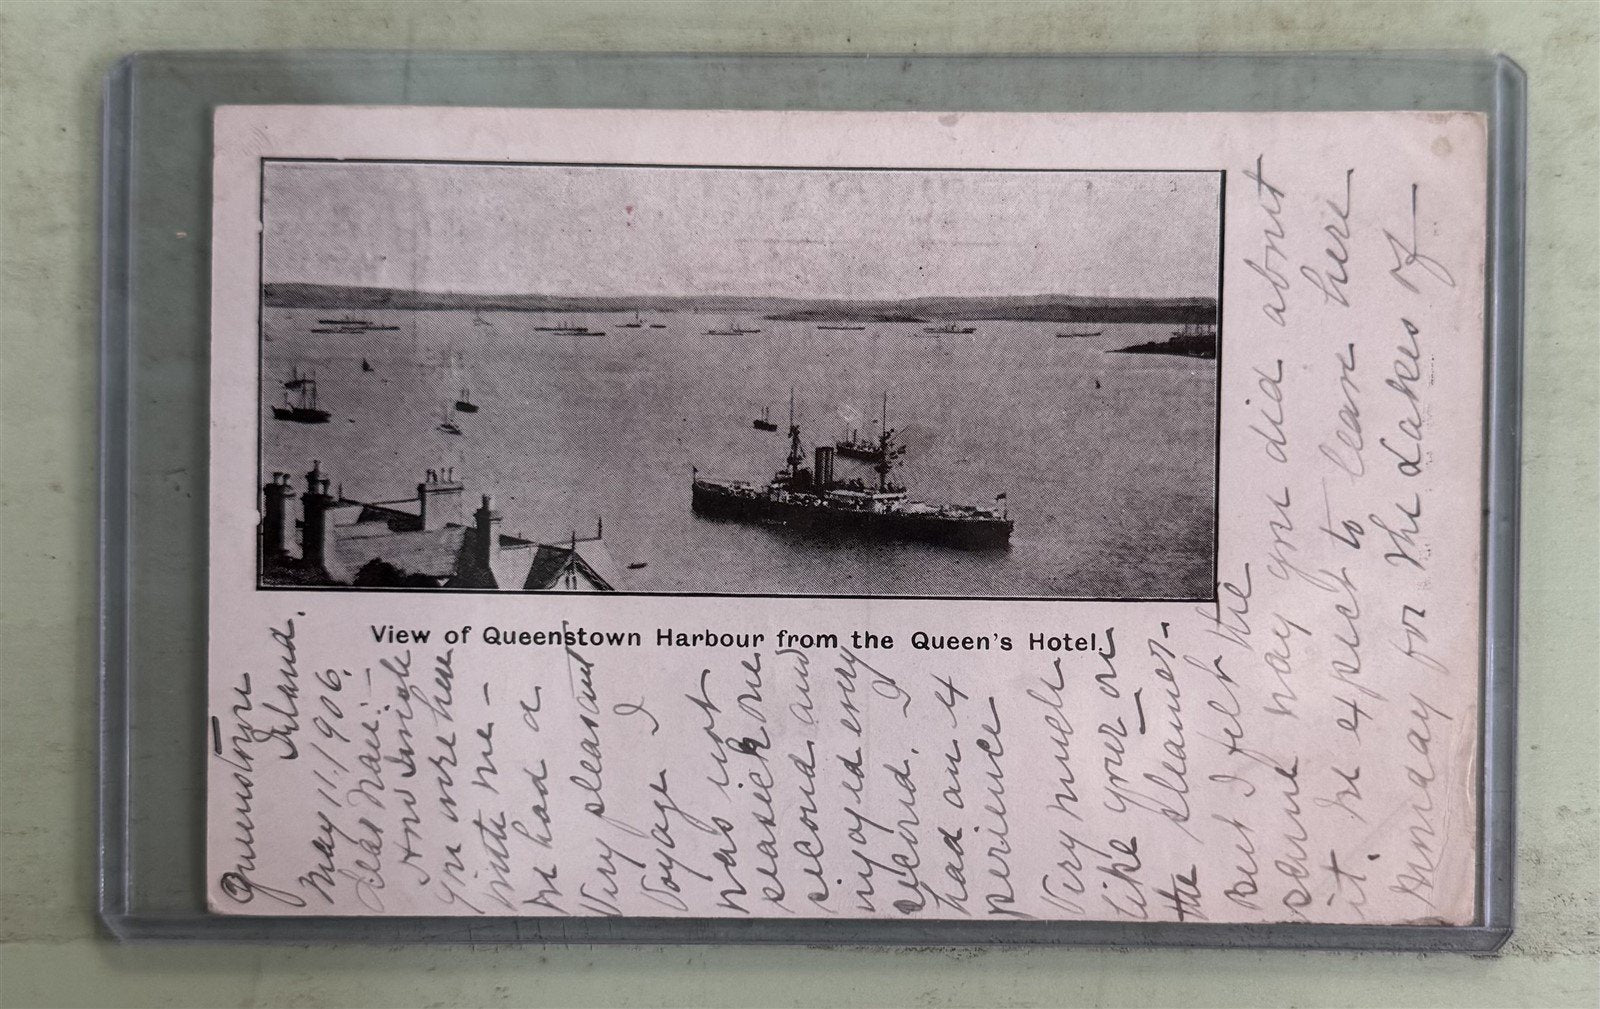 View of Queenstown Harbour from the Queen's Hotel.
Queenstown
Ireland.
May 11. 1906.
Dear
How I wish
you were here
with me –
We had a
very pleasant
voyage I
was not
seasick one
second and
enjoyed every
second. I
had an ex
perience
very much
like your on
the steamer –
but I felt the
same way you did about
it. We expect to leave here
Sunday for the Lakes of –